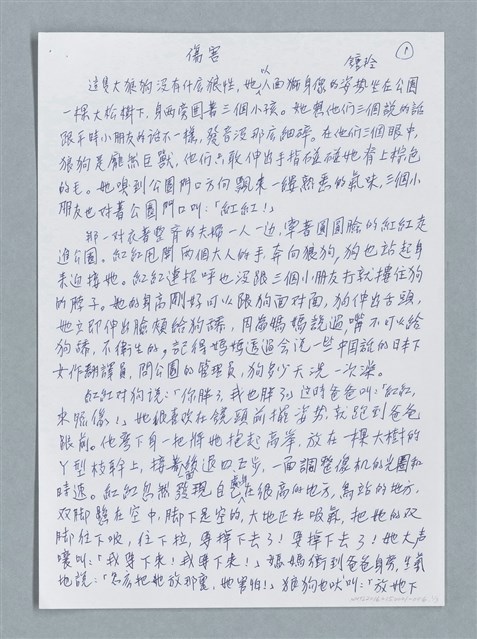 傷害
①
鍾玲
這隻大狼狗沒有什麼狼性，她以人面獅身像的姿勢坐在公園
一棵大松樹下，身西旁圍著三個小孩。她與他們三個說的話
跟平時小朋友的話不一樣，發音沒那麼細碎。在他們三個眼中，
狼狗是龐然巨獸，他們只敢伸出手指碰碰她脊上棕色
的毛。她嗅到公園門口方向飄來一縷熟悉的氣味，三個小
朋友也對著公園門口叫：「紅紅！」
那一對衣著整齊的夫婦一人一边，牽著圓圓臉的紅紅走
進公園。紅紅甩開兩個大人的手，奔向狼狗，狗也站起身
來迎接她。紅紅連招呼也沒跟三個小朋友打就摟住狗
的脖子。她的身高剛好可以跟狗面对面，狗伸出舌頭，
她立即伸出臉頰給狗舔，因為媽媽說過，嘴不可以給
狗舔，不衛生的。記得媽媽透過会說一些中国話的日本下
女作翻譯員，問公園的管理員，狗多少天洗一次澡。
紅紅对狗說：「你胖了，我也胖了。」這時爸爸叫：「紅紅，
來照像！」她很喜欢在鏡頭前擺姿势，就跑到爸爸
跟前。他彎下身一把將她抱起高举，放在一棵大樹的
丫型枝幹上，接著後退四五步，一面調整像机的光圈和
時速。紅紅忽然發現自己身在很高的地方，鳥站的地方，
双脚懸在空中，脚下是空的，大地正在吸氣，把她的双
脚往下吸，往下拉，要掉下去了！要掉下去了！她大声
嚷叫：「我要下來！我要下來！」媽媽衝到爸爸身旁，生氣
地說：「怎麼把她放那裏，她害怕！」狼狗也吠叫：「放她下